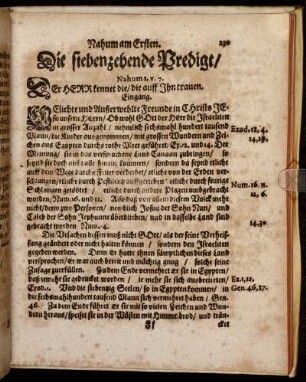 Nahum am Ersten.
230
Die siebenzehende Predigt/
Nahum 1. v. 7.
Der HERR kennet die/ die auff Jhn trauen.
Eingang.
Eliebte und Außerwehlte Freunde in Christo JE-
su unserm HErrn/ Ob wohl GOtt der HErr die Jsraeliten
in grosser Anzahl / nehmlich sechsmahl hundert tausend
Mann/ die Kinder ausgenommen/ mit grossen Wundern und Zei-
chen aus Egypten durchs rothe Meer geführet/ Ex. 12. und 14. Der
Exod. 12, 4.
14, 28.
Meinung / sie in das versprochene Land Canaan zubringen / so
seynd sie doch nicht alle hinein kommen / sondern da seynd etliche
auff dem Wege durchs Feuer verderbet/ etliche von der Erden ver-
schlungen/ etliche durch Pestilentz auffgerieben / etliche durch feurige
Schlangen getödtet / etliche durch andere Plagen umbgebracht
worden/ Num. 16. und 11. Also daß von allem diesem Volck mehr
Num. 16. 11.
11, 6.
nicht/ denn zwo Personen / nemlich Josua der Sohn Nun/ und
Caleb der Sohn Jephunne überblieben/ und in dasselbe Land sind
gebracht worden/ Num. 4.
14, 30.
Die Ursachen dessen muß nicht GOtt/ als der seine Verheis-
sung geändert oder nicht halten können / sondern den Jsraeliten
gegeben werden. Denn er hatte ihnen sämptlichen dieses Land
versprochen/ er war auch treu und mächtig gnug / solche seine
Zusage zuerfüllen. Zu dem Ende vermehret er sie in Egypten/
daß je mehr sie gedrucket worden / je mehr sie sich ausbreiteten/
Exod. 1. Und die siebentzig Seelen/ so in Egypten kommen/ in
Ex. 1, 12.
die sechsmahlhundert tausend Mann sich vermehret haben / Gen.
Gen. 46, 27.
46. Zu dem Ende führet er sie mit so vielen Zeichen und Wun-
dern heraus/ speiset sie in der Wüsten mit Himmelbrod/ und trän-
cket